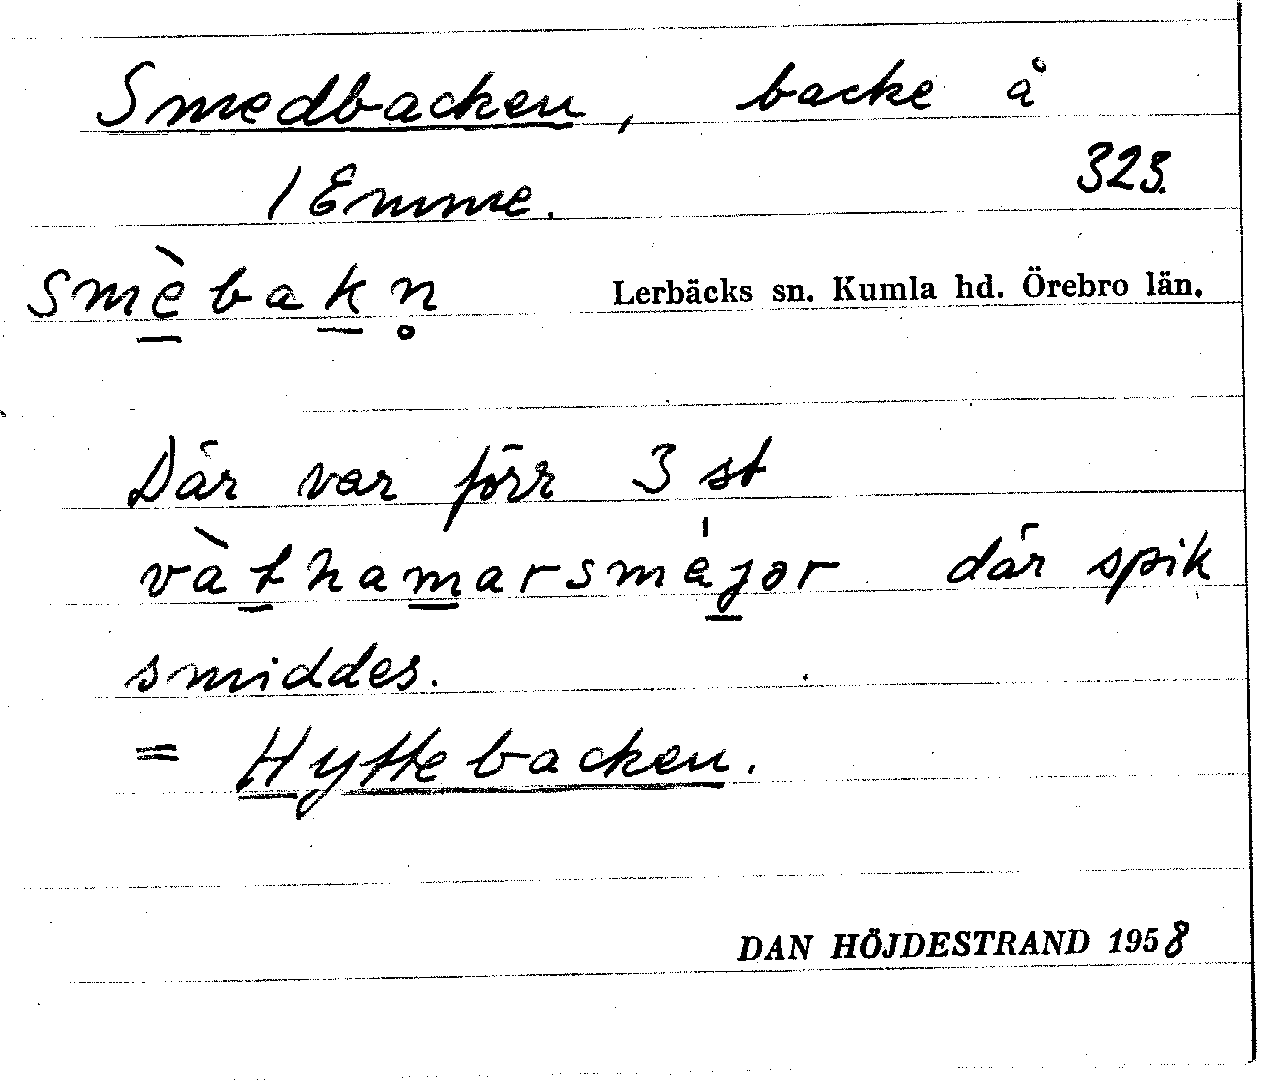 Smedbacken, backe å
1 Emme. 323.
smèbakn̥ Lerbäcks sn. Kumla hd. Örebro län.
Där var förr 3 st
vàthamarsméjər där spik
smiddes.
= Hyttebacken.
DAN HÖJDESTRAND 1958